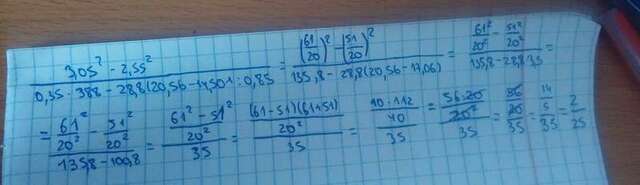 (3,05² - 2,55²)/(0,35 · 388 - 28,8(20,56 - 14,501 : 0,85)) = ((61/20)² - (51/20)²)/(135,8 - 28,8(20,56 - 17,06)) = (61²/20² - 51²/20²)/(135,8 - 28,8 · 3,5) =
= (61²/20² - 51²/20²)/(135,8 - 100,8) = ((61² - 51²)/20²)/35 = ((61-51)(61+51)/20²)/35 = (10·112/40)/35 = (56·20/20²)/35 = (56/20)/35 = (14/5)/35 = 2/25